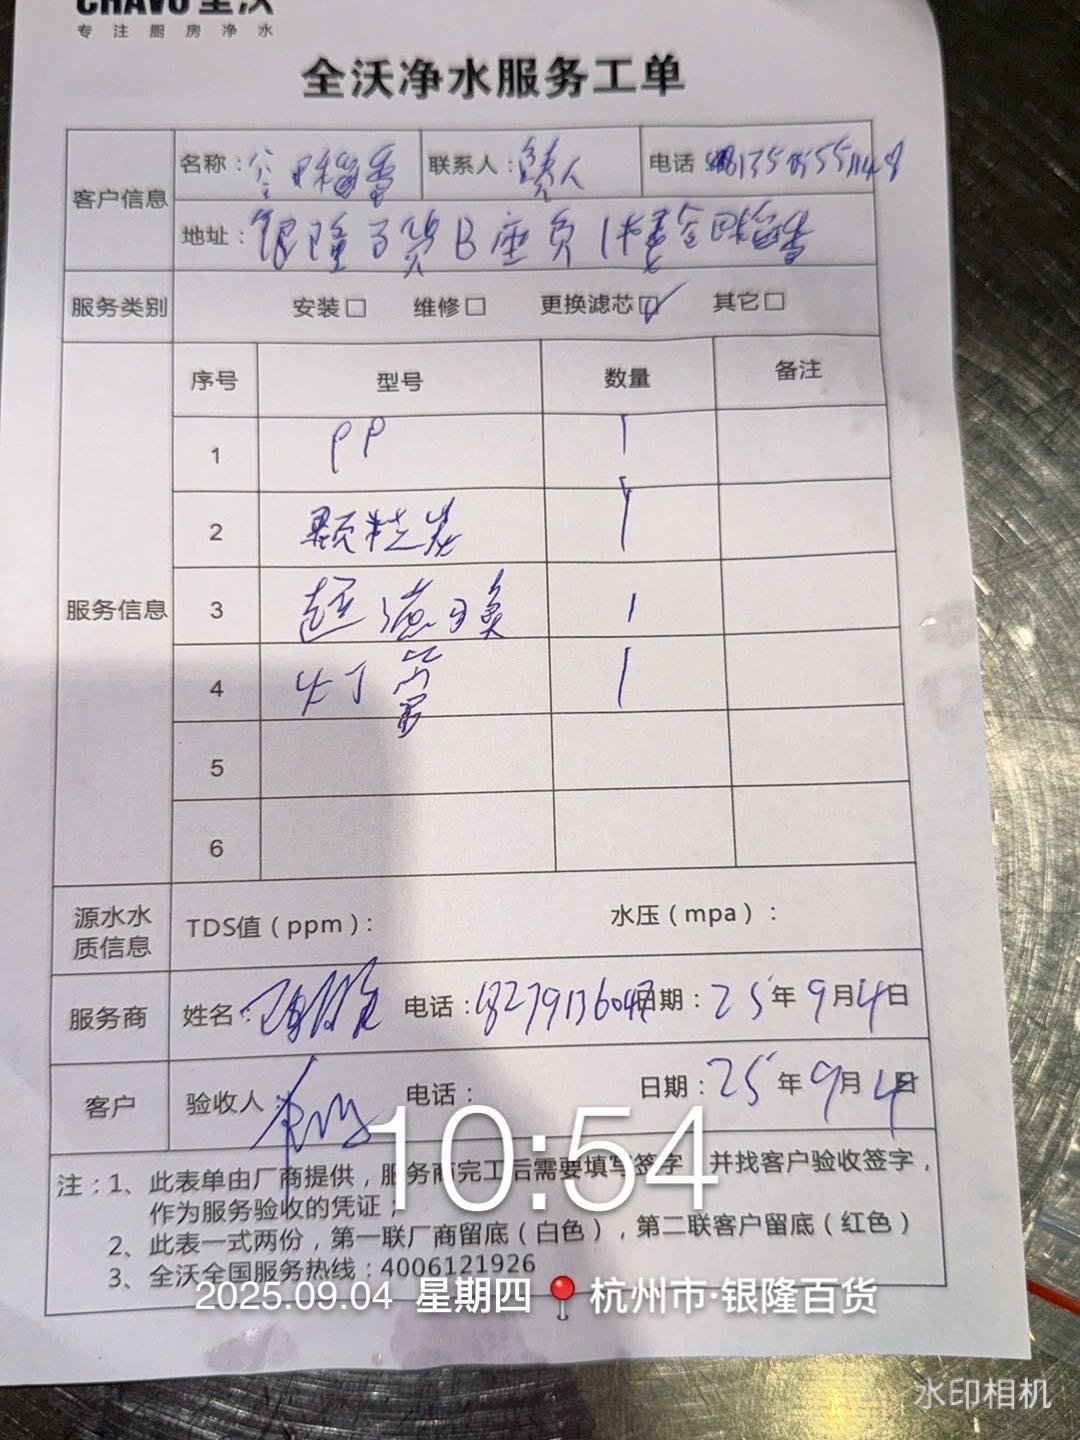 CHAVO 全沃
专注厨房净水
全沃净水服务工单
客户信息
名称：全田稻香 联系人： 电话
地址：银隆百货B座负1楼全田稻香
服务类别 安装□ 维修□ 更换滤芯☑ 其它□
服务信息
序号 型号 数量 备注
1 PP 1
2 颗粒炭 1
3 超滤膜 1
4 灯管 1
5
6
源水水质信息 TDS值（ppm）： 水压（mpa）：
服务商 姓名： 电话：18279136047 日期：25年9月4日
客户 验收人： 电话： 日期：25年9月4日
注：1、此表单由厂商提供，服务商完工后需要填写签字，并找客户验收签字，
作为服务验收的凭证；
2、此表一式两份，第一联厂商留底（白色），第二联客户留底（红色）
3、全沃全国服务热线：4006121926
10:54
2025.09.04 星期四 杭州市·银隆百货
水印相机